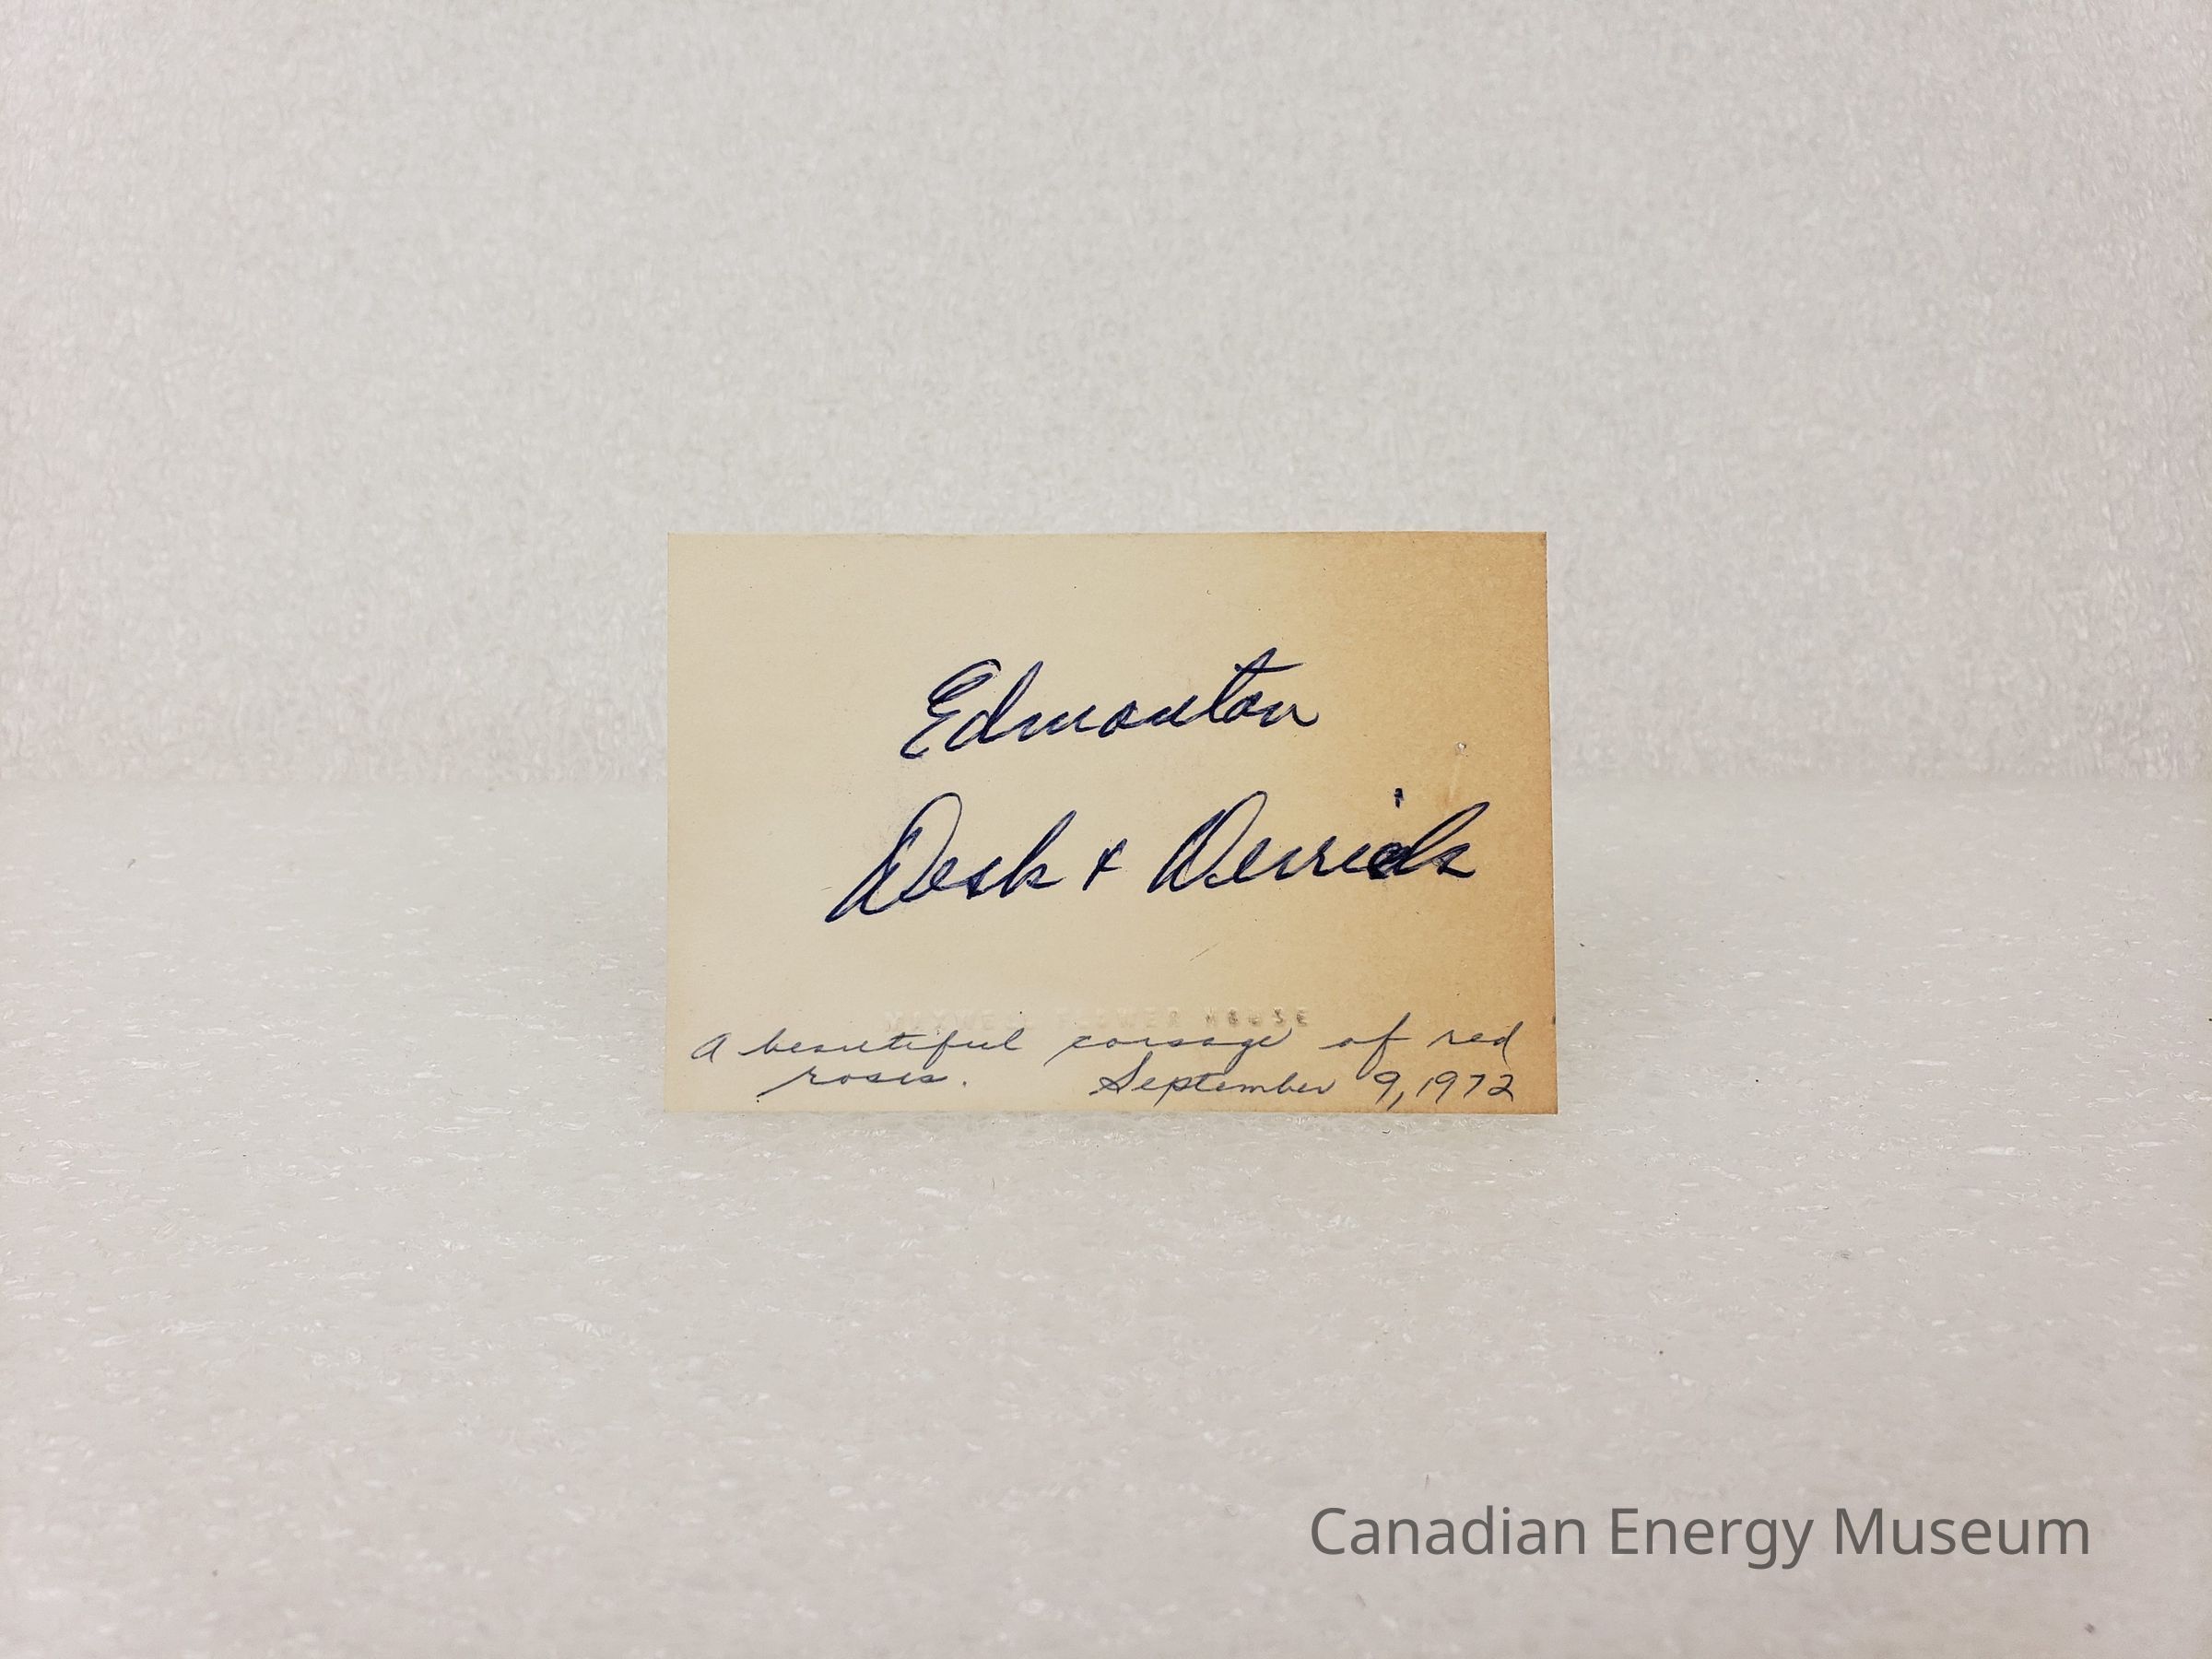 Edmonton
Desk + Derrick
FLOWER HOUSE
A beautiful corsage of red
roses. September 9, 1972
Canadian Energy Museum